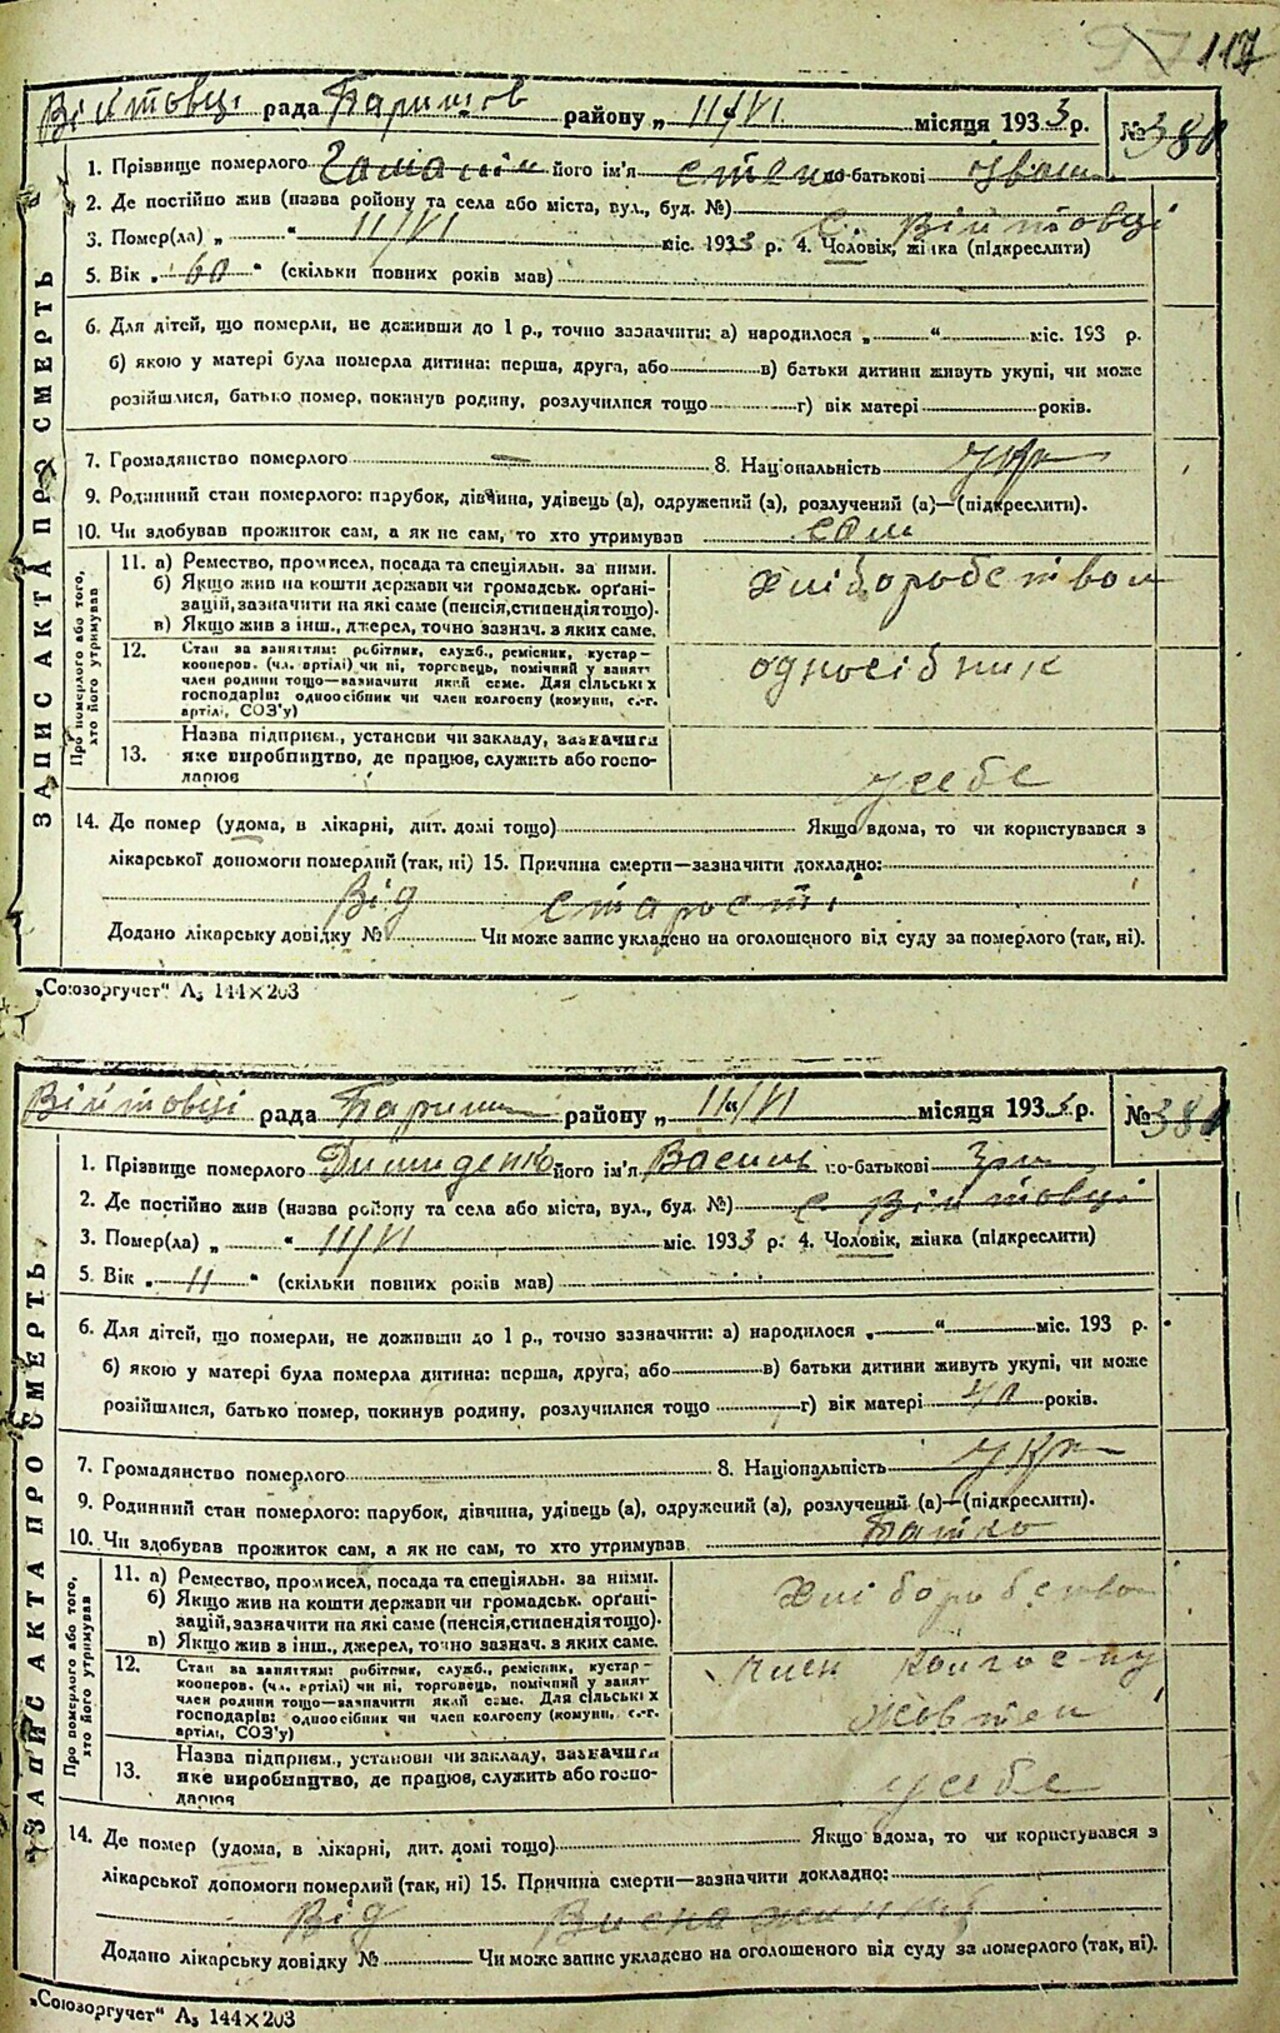 117
Війтовці рада Баришов району „ 11/VI місяця 1933 р. № 380
1. Прізвище померлого його ім'я Степ по-батькові Іван
2. Де постійно жив (назва району та села або міста, вул., буд. №) с. Війтовці
3. Помер(ла) „ “ 11/VI міс. 1933 р. 4. Чоловік, жінка (підкреслити)
5. Вік „ 60 “ (скільки повних років мав)
6. Для дітей, що померли, не доживши до 1 р., точно зазначити: а) народилося „ “ міс. 193 р.
б) якою у матері була померла дитина: перша, друга, або в) батьки дитини живуть укупі, чи може
розійшлися, батько помер, покинув родину, розлучилися тощо г) вік матері років.
7. Громадянство померлого — 8. Національність Укр
9. Родинний стан померлого: парубок, дівчина, удівець (а), одружений (а), розлучений (а)—(підкреслити).
10. Чи здобував прожиток сам, а як не сам, то хто утримував сам
ЗАПИС АКТА ПРО СМЕРТЬ
Про померлого або того, хто його утримував
11. а) Ремество, промисел, посада та спеціяльн. за ними.
б) Якщо жив на кошти держави чи громадськ. орґані-
зацій, зазначити на які саме (пенсія, стипендія тощо).
в) Якщо жив з інш., джерел, точно зазнач. з яких саме.
Хліборобством
12. Стан за заняттям: робітник, служб., ремісник, кустар—
кооперов. (чл. артілі) чи ні, торговець, помічний у занят.
член родини тощо—зазначити який саме. Для сільськ х
господарів: одноосібник чи член колгоспу (комуни, с.-г.
артілі, СОЗ'у)
односібник
13. Назва підприєм., установи чи закладу, зазначити
яке виробництво, де працює, служить або госпо-
дарює
у себе
14. Де помер (удома, в лікарні, дит. домі тощо) Якщо вдома, то чи користувався з
лікарської допомоги померлий (так, ні) 15. Причина смерти—зазначити докладно:
Від старості
Додано лікарську довідку № Чи може запис укладено на оголошеного від суду за померлого (так, ні).
„Союзоргучет“ А5 144×203
Війтовці рада Бариш району „ 11/VI місяця 1933 р. №
1. Прізвище померлого його ім'я Василь по-батькові
2. Де постійно жив (назва району та села або міста, вул., буд. №) с Війтовці
3. Помер(ла) „ “ 11/VI міс. 1933 р. 4. Чоловік, жінка (підкреслити)
5. Вік „ 11 “ (скільки повних років мав)
6. Для дітей, що померли, не доживши до 1 р., точно зазначити: а) народилося „ “ міс. 193 р.
б) якою у матері була померла дитина: перша, друга, або в) батьки дитини живуть укупі, чи може
розійшлися, батько помер, покинув родину, розлучилися тощо г) вік матері 40 років.
7. Громадянство померлого 8. Національність Укр
9. Родинний стан померлого: парубок, дівчина, удівець (а), одружений (а), розлучений (а)—(підкреслити).
10. Чи здобував прожиток сам, а як не сам, то хто утримував Батько
ЗАПИС АКТА ПРО СМЕРТЬ
Про померлого або того, хто його утримував
11. а) Ремество, промисел, посада та спеціяльн. за ними.
б) Якщо жив на кошти держави чи громадськ. орґані-
зацій, зазначити на які саме (пенсія, стипендія тощо).
в) Якщо жив з інш., джерел, точно зазнач. з яких саме.
Хліборобство
12. Стан за заняттям: робітник, служб., ремісник, кустар—
кооперов. (чл. артілі) чи ні, торговець, помічний у занят.
член родини тощо—зазначити який саме. Для сільськ х
господарів: одноосібник чи член колгоспу (комуни, с.-г.
артілі, СОЗ'у)
член колгоспу
Жовтен
13. Назва підприєм., установи чи закладу, зазначити
яке виробництво, де працює, служить або госпо-
дарює
у себе
14. Де помер (удома, в лікарні, дит. домі тощо) Якщо вдома, то чи користувався з
лікарської допомоги померлий (так, ні) 15. Причина смерти—зазначити докладно:
Від
Додано лікарську довідку № Чи може запис укладено на оголошеного від суду за померлого (так, ні).
„Союзоргучет“ А5 144×203